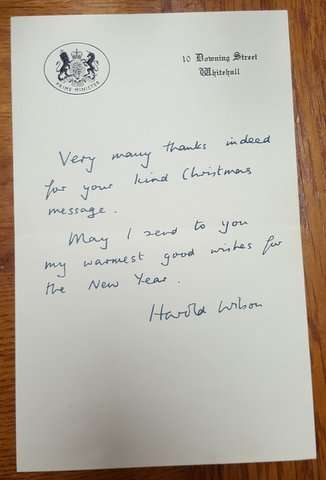 PRIME MINISTER
10 Downing Street
Whitehall
Very many thanks indeed
for your kind Christmas
message.
May I send to you
my warmest good wishes for
the New Year.
Harold Wilson